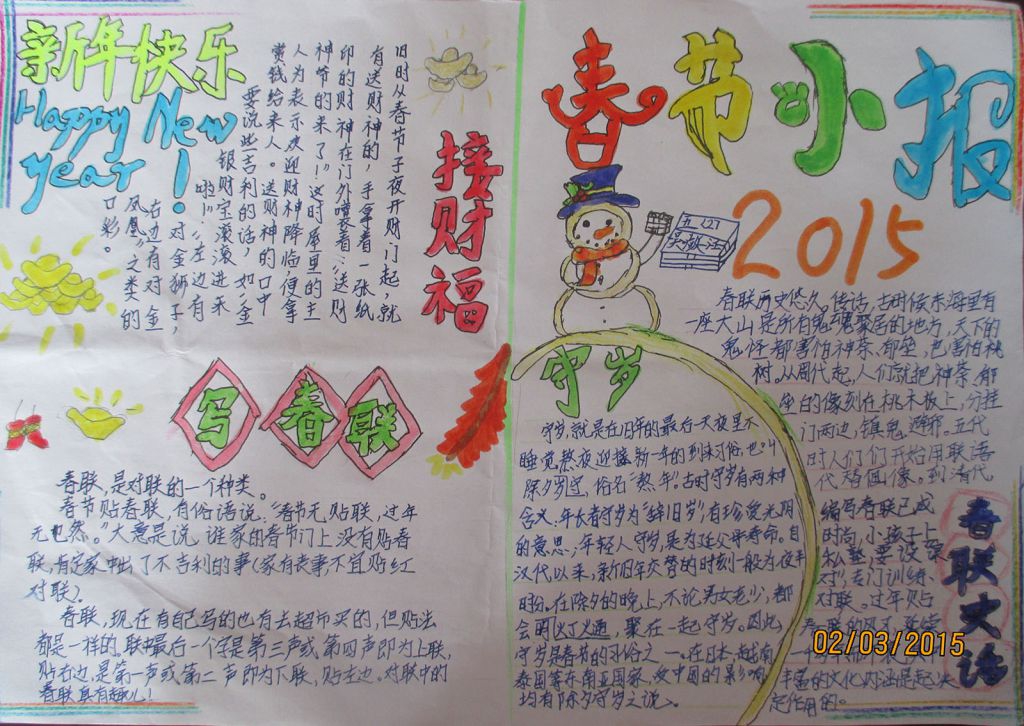 新年快乐
Happy New
year!
接财福
旧时从春节子夜开财门起,就
有送财神的,手拿着一张纸
印的财神在门外嚷着:“送财
神爷的来了!”这时屋里的主
人为表示欢迎财神降临,便拿
赏钱给来人。送财神的口中
要说些吉利的话,如:“金
银财宝滚滚进来
啦!”“左边有
对金狮子,
右边有对金
凤凰”之类的
口彩。
写春联
春联,是对联的一个种类。
春节贴春联,有俗语说:“春节无贴联,过年
无也然。”大意是说,谁家的春节门上没有贴春
联,肯定家中出了不吉利的事(家有丧事不宜贴红
对联)。
春联,现在有自己写的也有去超市买的,但贴法
都是一样的,联中最后一个字是第三声或第四声即为上联,
贴右边,是第一声或第二声即为下联,贴左边。对联中的
春联真有趣儿!
春节小报
2015
守岁
守岁,就是在旧年的最后一天夜里不
睡觉,熬夜迎接新一年的到来习俗,也叫
除夕守岁,俗名“熬年”。古时守岁有两种
含义:年长者守岁为“辞旧岁”,有珍爱光阴
的意思;年轻人守岁,是为延父母寿命。自
汉代以来,新旧年交替的时刻一般为夜半
时份。在除夕的晚上,不论男女老少,都
会明灯火通,聚在一起守岁。因此,
守岁是春节的习俗之一。在日本、越南
泰国等东南亚国家,受中国的影响
均有除夕守岁之说。
春联史话
春联历史悠久,传话,古时候东海里有
一座大山是所有鬼魂聚居的地方,天下的
鬼怪都害怕神荼、郁垒,也害怕桃
树。从周代起,人们就把神荼、郁
垒的像刻在桃木板上,分挂
门两边,镇鬼避邪。五代
时人们开始用联语
代替画像。到清代
编写春联已成
时尚,小孩子上
私塾,要设
对”专门训练
对联。过年贴
春联的风习
丰富的文化内涵是起决
定作用的。
02/03/2015